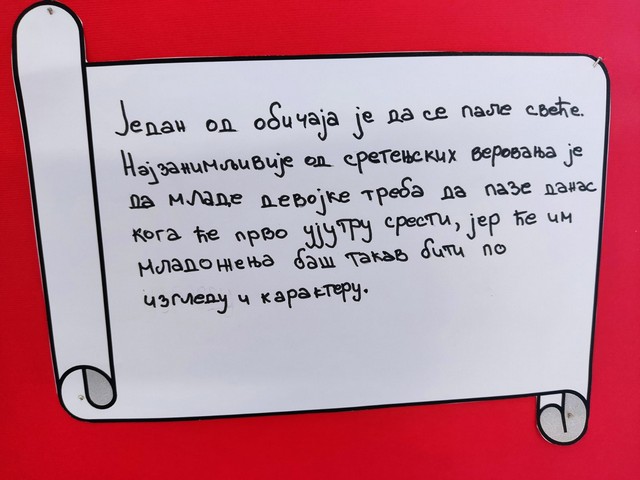 Један од обичаја је да се пале свеће.
Најзанимљивије од сретењских веровања је
да младе девојке треба да пазе данас
кога ће прво ујутру срести, јер ће им
младожења баш такав бити по
изгледу и карактеру.